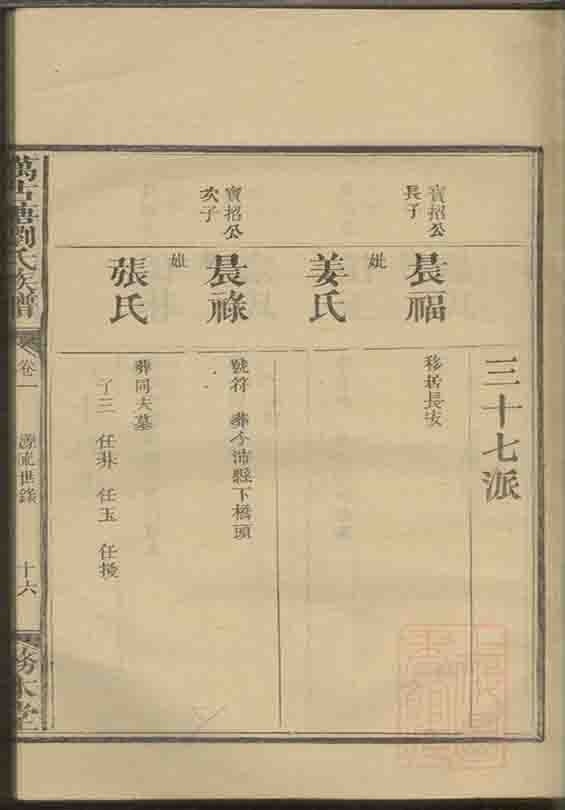 三十七派
寶招公
長子
晨福
移居長安
妣
姜氏
寶招公
次子
晨祿
號符 葬今沛縣下橋頭
妣
張氏
葬同夫墓
子三 任琳 任玉 任授
萬古塘劉氏族譜
卷一 源流世錄 十六
務本堂